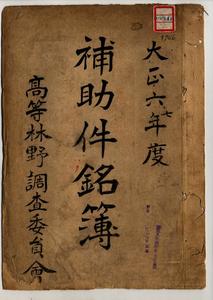 大正六七年度
補助件銘簿
高等林野調査委員會